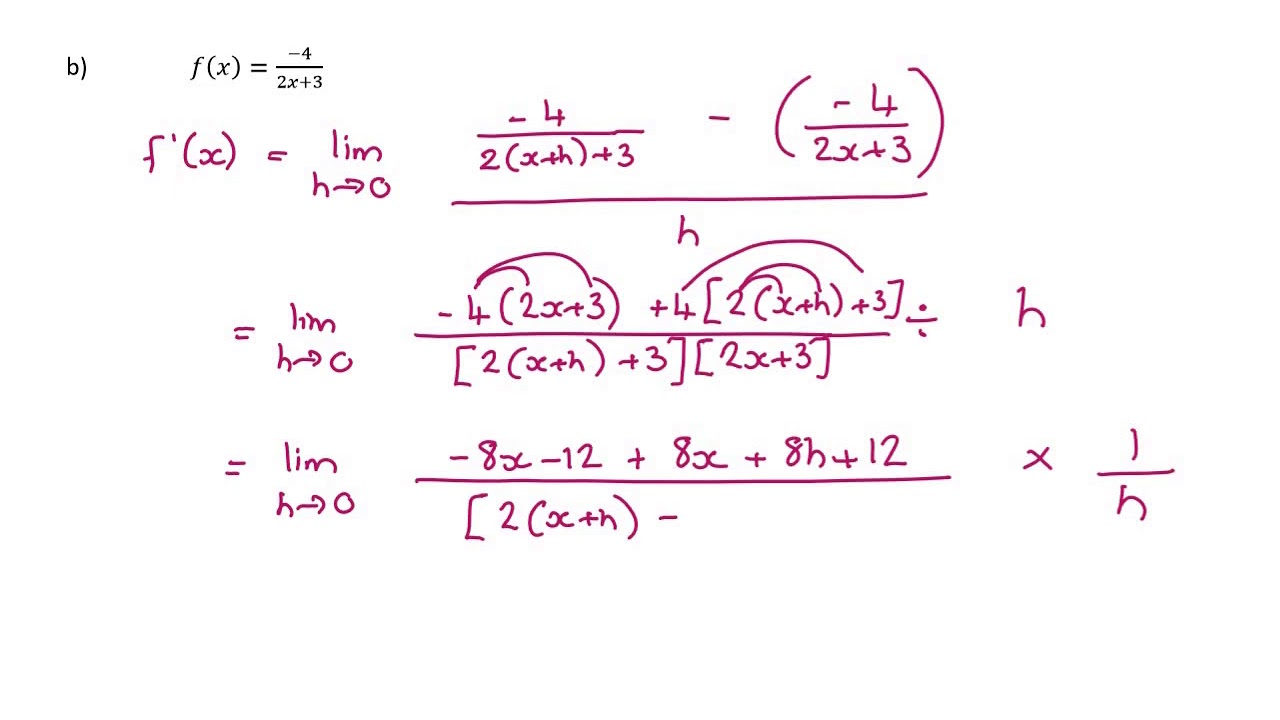 b) f(x) = −4/(2x+3)
f'(x) = lim h→0 (−4/(2(x+h)+3) − (−4/(2x+3)))/h
= lim h→0 (−4(2x+3) +4[2(x+h)+3])/([2(x+h)+3][2x+3]) ÷ h
= lim h→0 (−8x−12 + 8x + 8h+12)/([2(x+h) − × 1/h